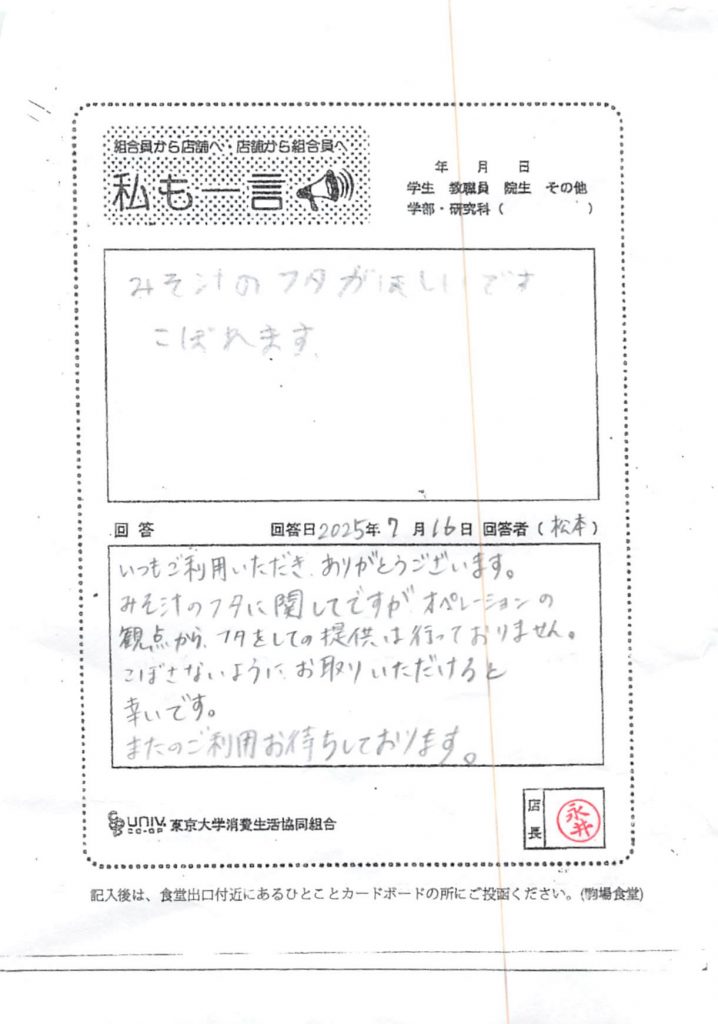 組合員から店舗へ・店舗から組合員へ
私も一言
年 月 日
学生 教職員 院生 その他
学部・研究科（ ）
みそ汁のフタがほしいです
こぼれます
回答 回答日2025年7月16日 回答者（松本）
いつもご利用いただき、ありがとうございます。
みそ汁のフタに関してですが、オペレーションの
観点から、フタをしての提供は行っておりません。
こぼさないように、お取りいただけると
幸いです。
またのご利用お待ちしております。
店長
永井
UNIV. CO-OP 東京大学消費生活協同組合
記入後は、食堂出口付近にあるひとことカードボードの所にご投函ください。(駒場食堂)